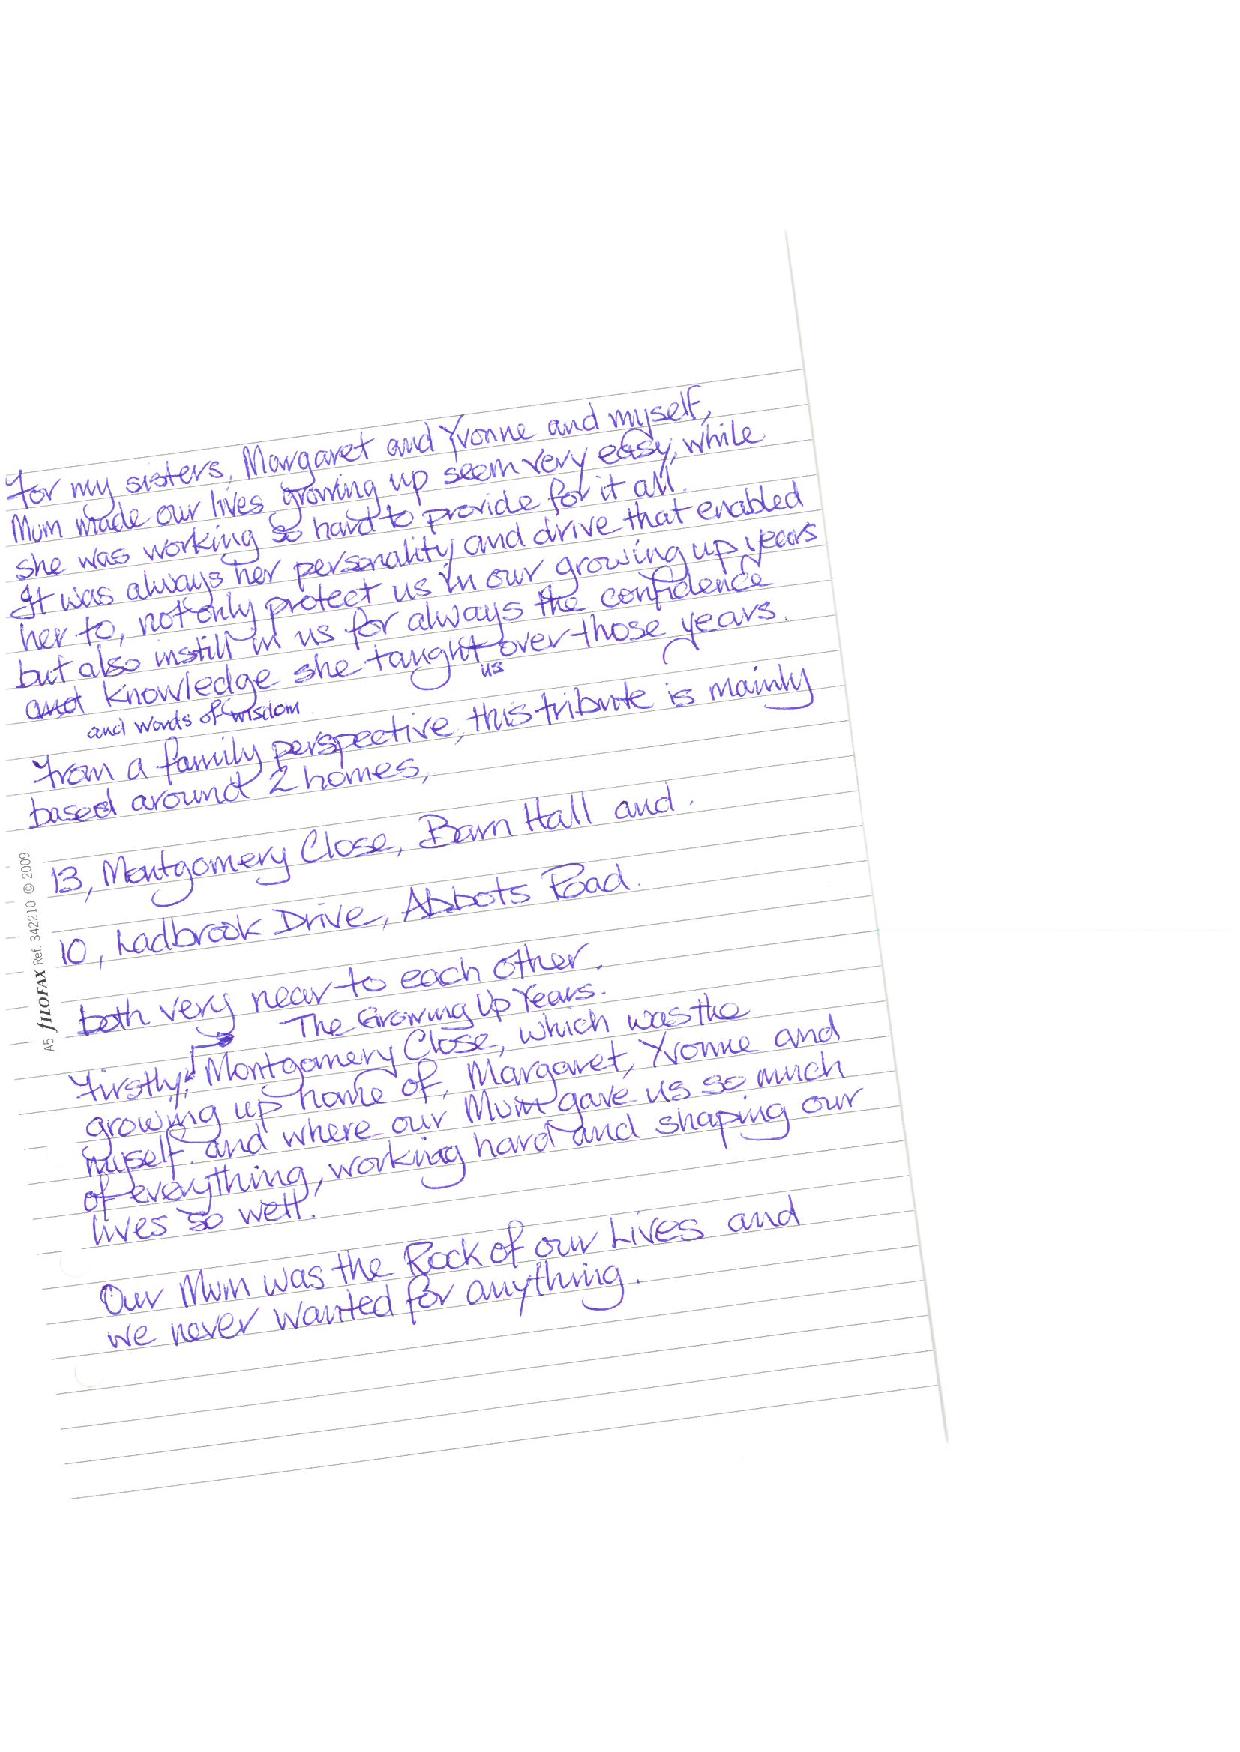 For my sisters, Margaret and Yvonne and myself,
Mum made our lives growing up seem very easy, while
she was working so hard to provide for it all.
It was always her personality and drive that enabled
her to, not only protect us in our growing up years
but also instill in us for always the confidence
and knowledge she taught over those years.
us
and words of wisdom
From a family perspective, this tribute is mainly
based around 2 homes,
13, Montgomery Close, Barn Hall and.
10, Ladbrook Drive, Abbots Road.
both very near to each other.
The Growing Up Years.
Firstly, Montgomery Close, which was the
growing up home of, Margaret, Yvonne and
myself. and where our Mum gave us so much
of everything, working hard and shaping our
lives so well.
Our Mum was the Rock of our Lives and
we never wanted for anything.
A5 FILOFAX Ref. 342210 © 2009